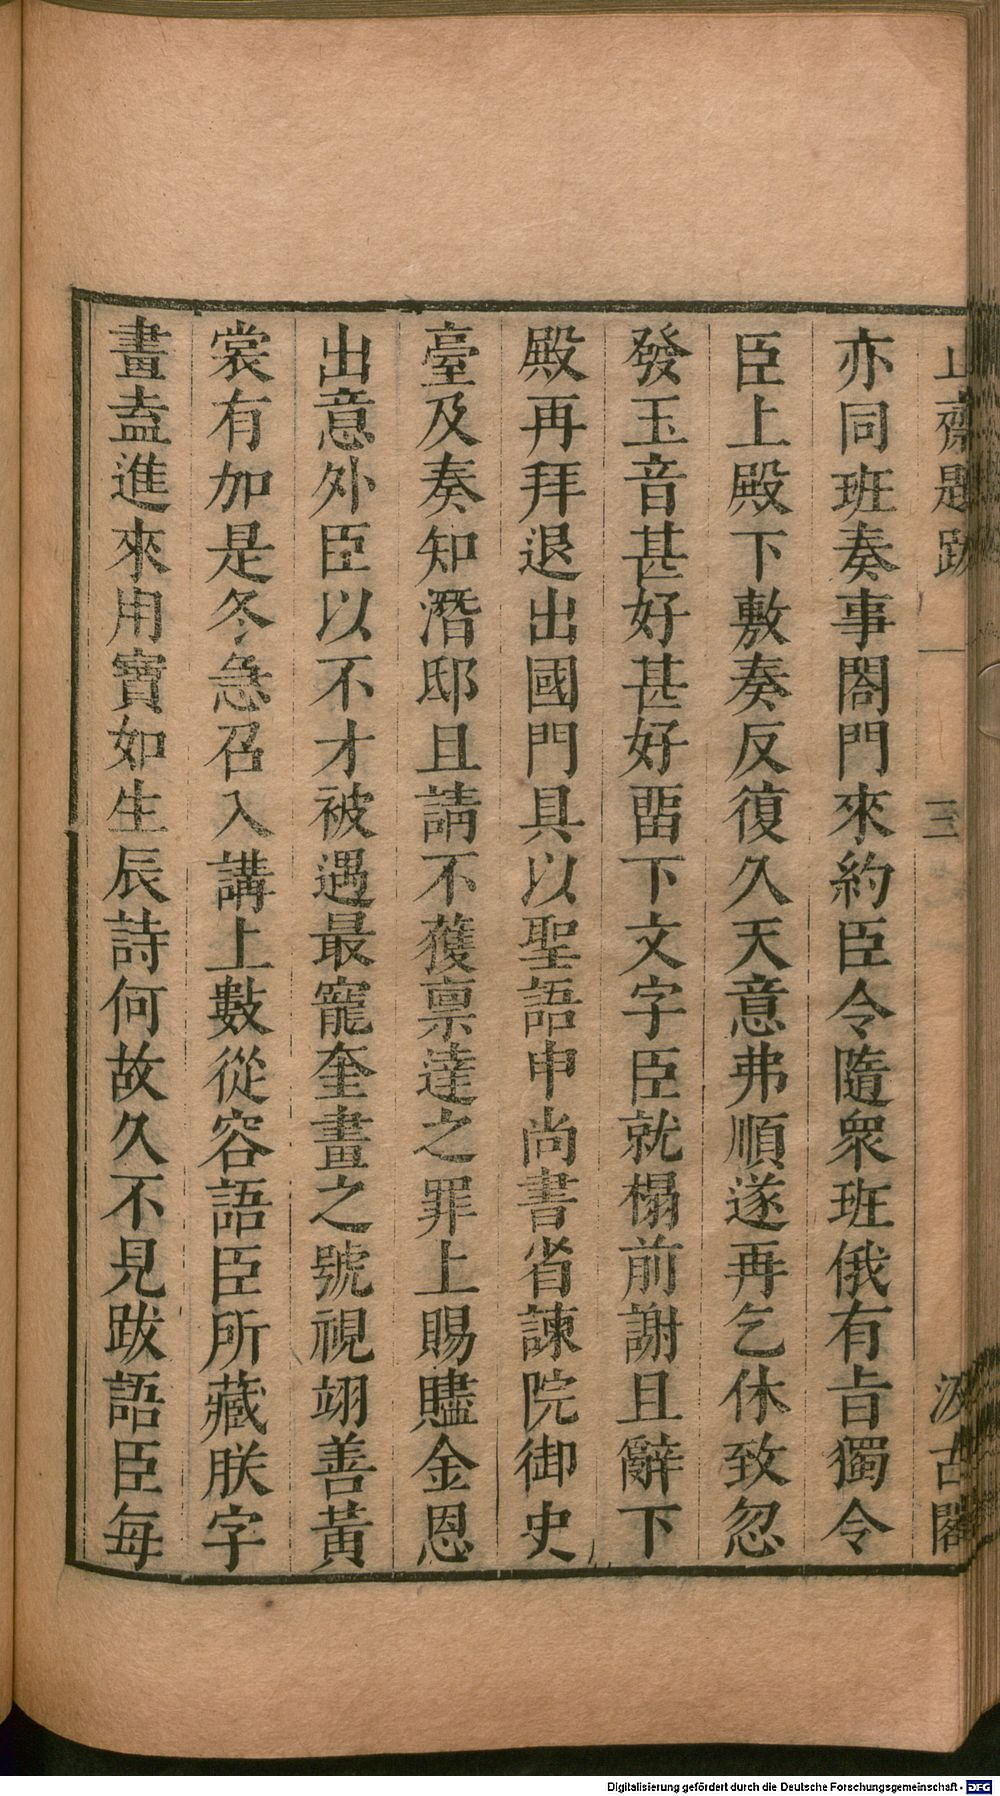 止齋題跋 一 三 汲古閣
亦同班奏事閤門來約臣令隨衆班俄有㫖獨令
臣上殿下敷奏反復久天意弗順遂再乞休致忽
發玉音甚好甚好畱下文字臣就榻前謝且辭下
殿再拜退出國門具以聖語申尚書省諫院御史
臺及奏知潛邸且請不獲禀達之罪上賜贐金恩
出意外臣以不才被遇最寵奎畫之號視翊善黃
裳有加是冬急召入講上數從容語臣所藏朕字
畫盍進來用寶如生辰詩何故久不見跋語臣每
Digitalisierung gefördert durch die Deutsche Forschungsgemeinschaft - DFG